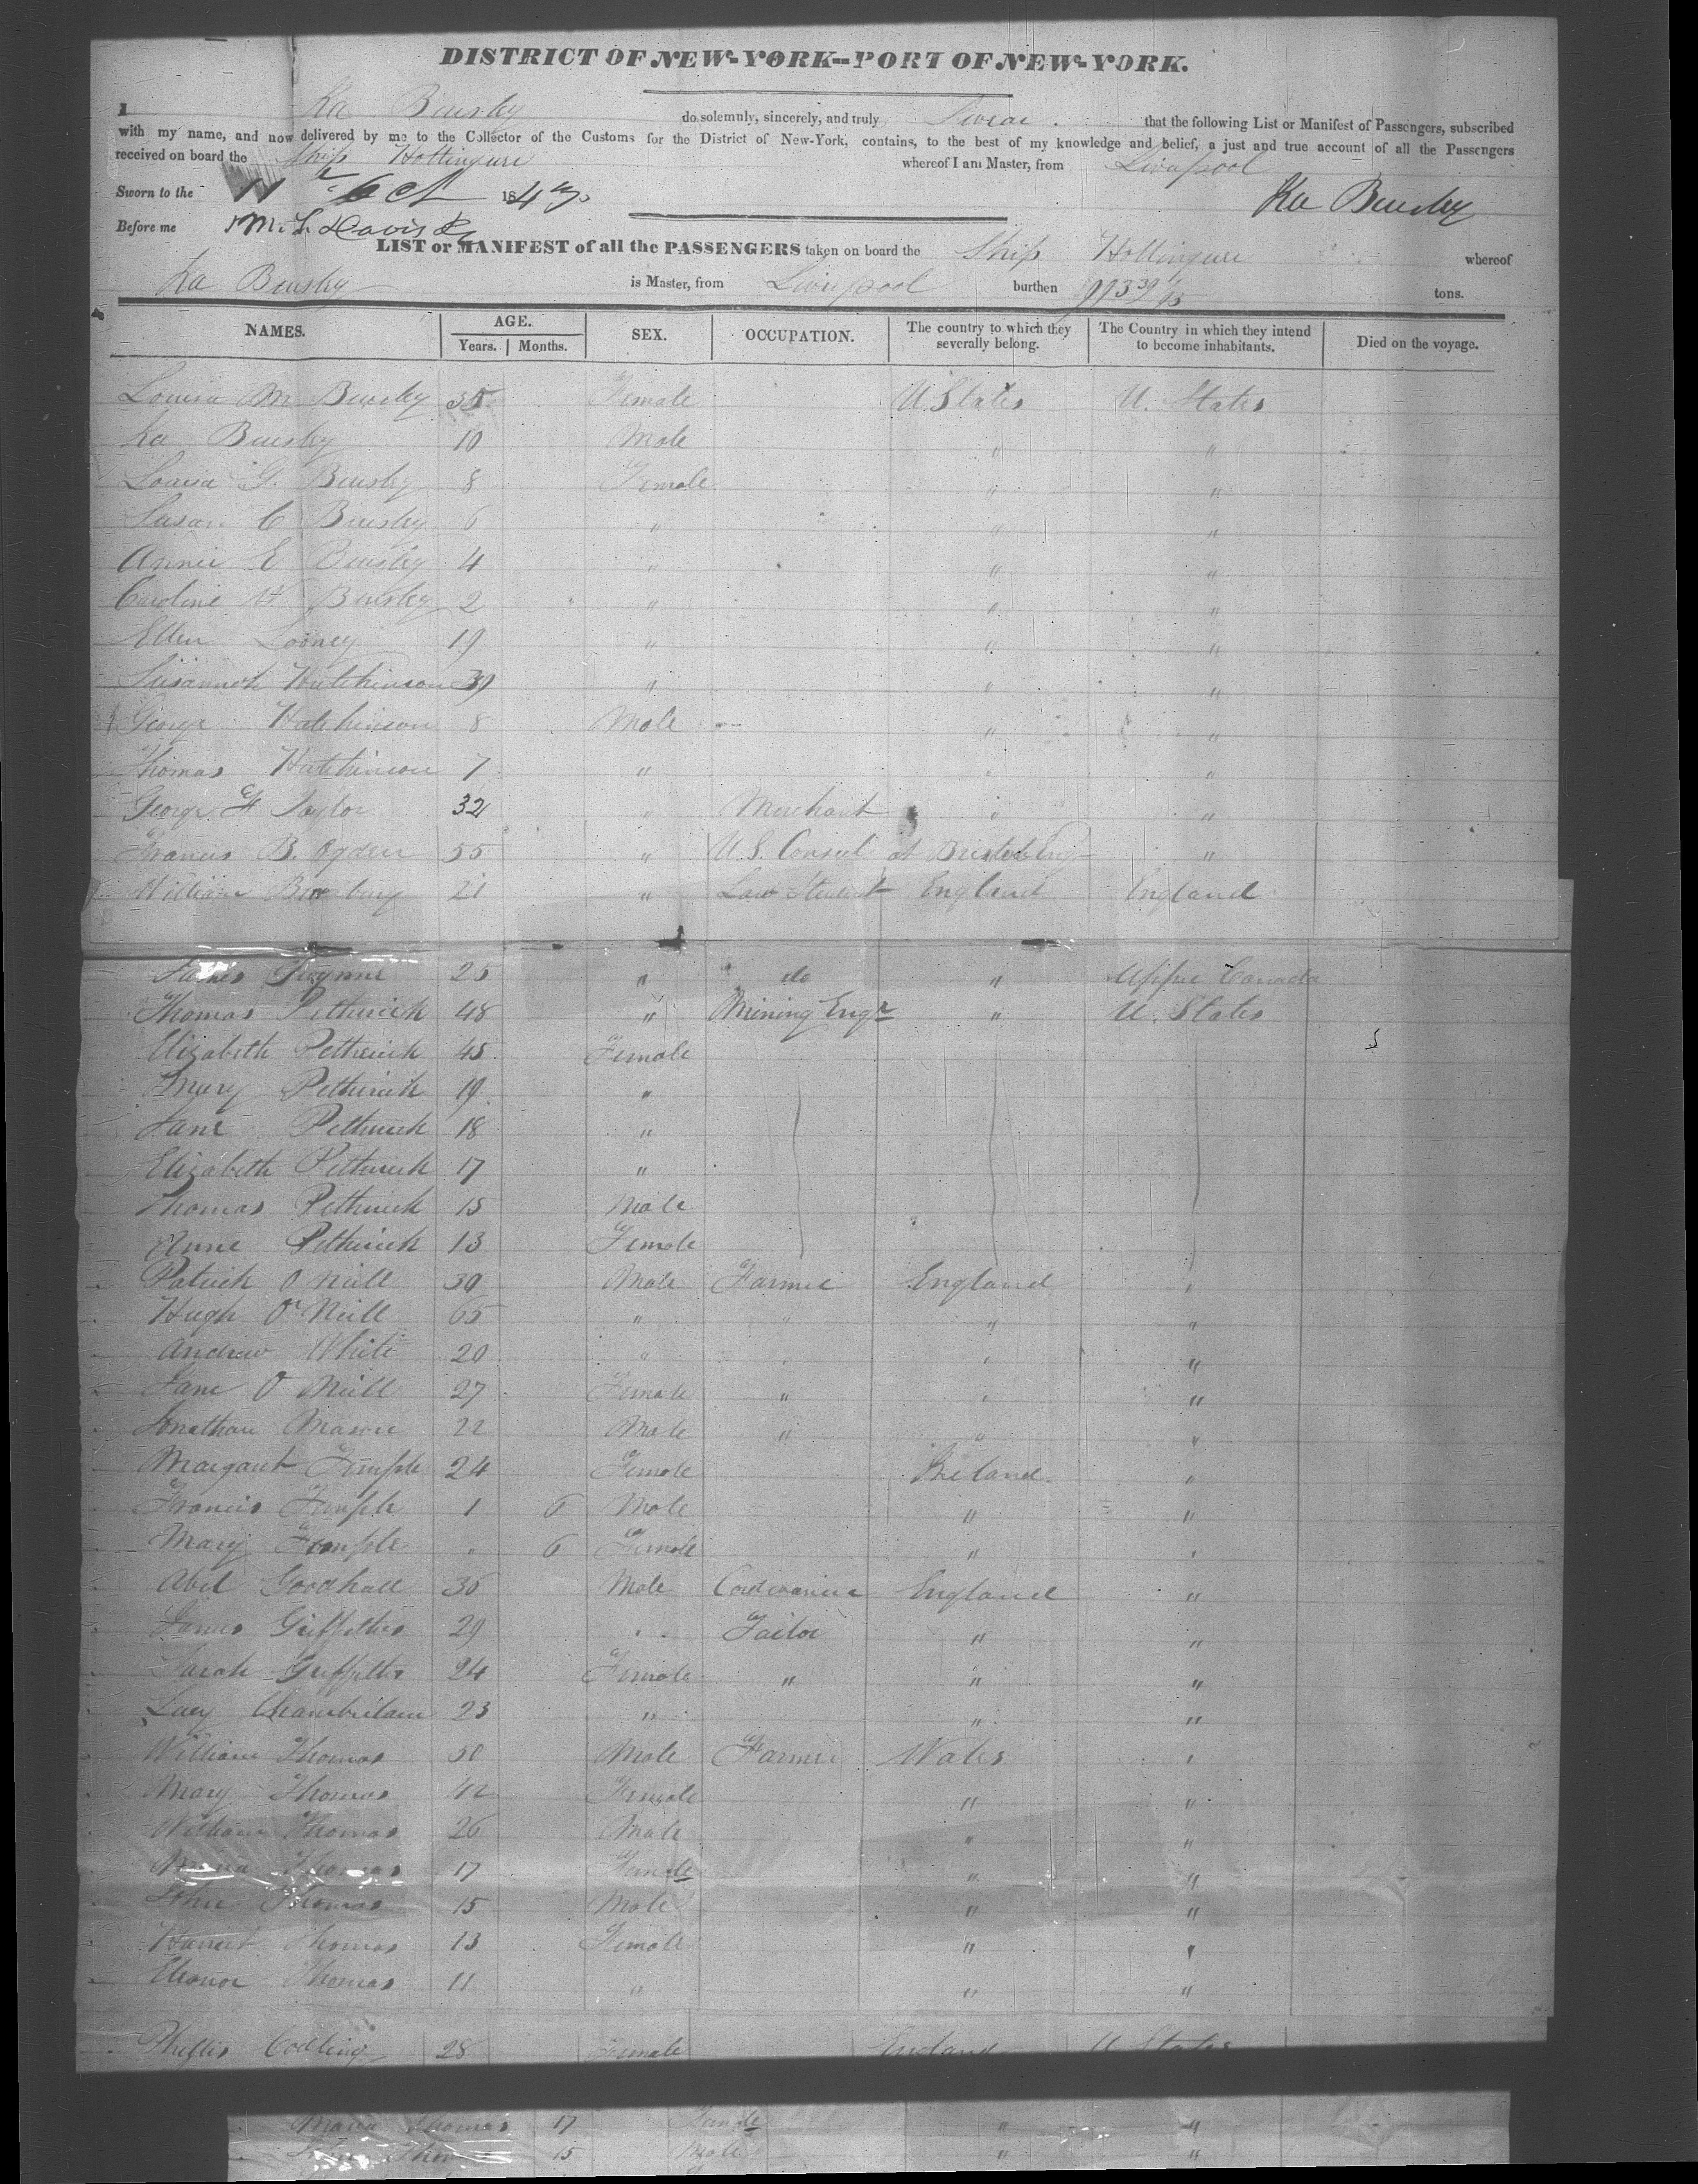 DISTRICT OF NEW-YORK--PORT OF NEW-YORK.
I Ira Bursley do solemnly, sincerely, and truly Swear that the following List or Manifest of Passengers, subscribed
with my name, and now delivered by me to the Collector of the Customs for the District of New-York, contains, to the best of my knowledge and belief, a just and true account of all the Passengers
received on board the Ship Hottinguer whereof I am Master, from Liverpool
Sworn to the 11th Oct 1843. Ira Bursley
Before me M. L. Davis
LIST or MANIFEST of all the PASSENGERS taken on board the Ship Hottinguer whereof
Ira Bursley is Master, from Liverpool burthen tons.
NAMES. AGE. Years. Months. SEX. OCCUPATION. The country to which they severally belong. The Country in which they intend to become inhabitants. Died on the voyage.
Louisa M Bursley 35 Female U. States U. States
Ira Bursley 10 Male " "
Louisa G. Bursley 8 Female " "
Susan C Bursley 6 " " "
Annie E Bursley 4 " " "
Caroline H Bursley 2 " " "
Ellen Looney 19 " " "
Susannah Hutchinson 39 " " "
George Hutchinson 8 Male " "
Thomas Hutchinson 7 " " "
George F Taylor 32 " Merchant " "
Francis B. Ogden 55 " U.S. Consul at Bristol Eng "
William 21 " Law Student England England
James Gwynne 25 " do " Upper Canada
Thomas Petherick 48 " Mining Engr " U. States
Elizabeth Petherick 45 Female
Mary Petherick 19 "
Jane Petherick 18 "
Elizabeth Petherick 17 "
Thomas Petherick 15 Male
Anne Petherick 13 Female
Patrick O Neill 30 Male Farmer England "
Hugh O'Neill 65 " " " "
Andrew White 20 " " " "
Jane O Neill 27 Female " " "
Jonathan Mason 22 Male " " "
Margaret Temple 24 Female Ireland "
Francis Temple 1 6 Male " "
Mary Temple " 6 Female " "
Abel Goodhall 36 Male Cordwainer England "
James Griffiths 29 " Tailor " "
Sarah Griffiths 24 Female " " "
Lucy Chamberlain 23 " " "
William Thomas 50 Male Farmer Wales "
Mary Thomas 42 Female " "
William Thomas 26 Male " "
Maria Thomas 17 Female " "
John Thomas 15 Male " "
Harriet Thomas 13 Female " "
Eleonor Thomas 11 " " "
Phillis Codling 28 Female England U States
Maria Thomas 17 Female " "
John Thomas 15 Male " "